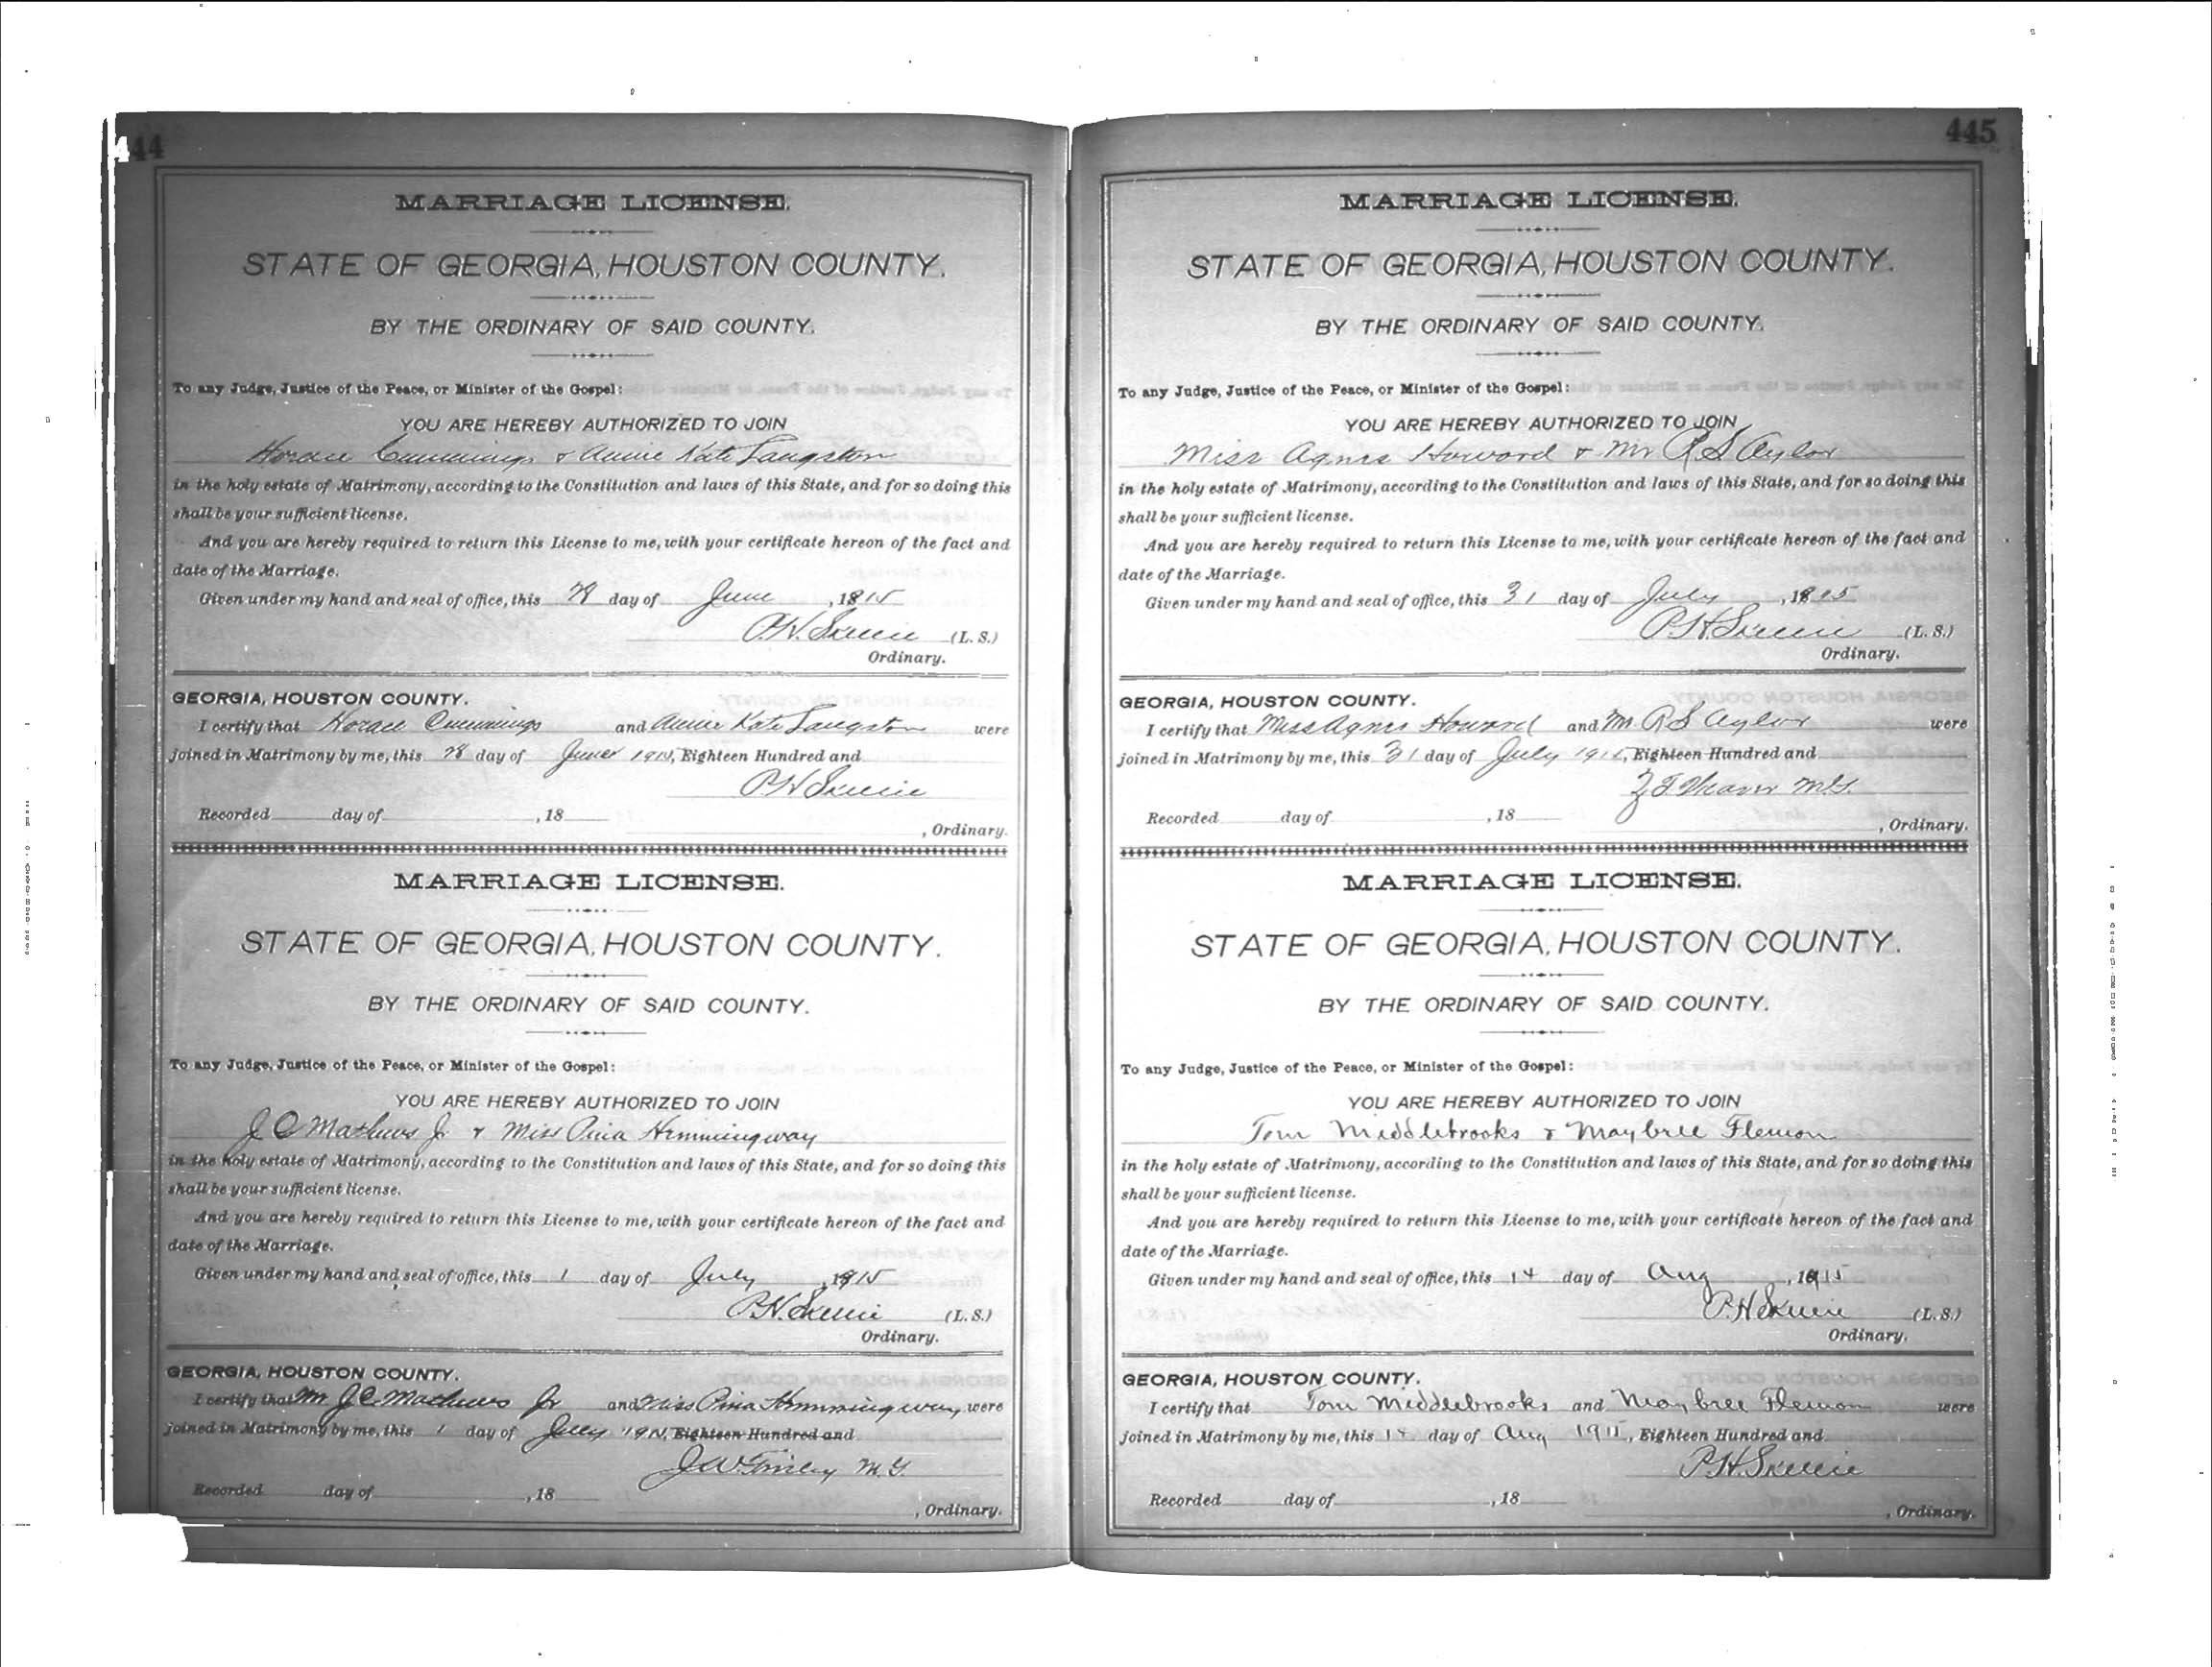 444
MARRIAGE LICENSE.
STATE OF GEORGIA, HOUSTON COUNTY.
BY THE ORDINARY OF SAID COUNTY.
To any Judge, Justice of the Peace, or Minister of the Gospel:
YOU ARE HEREBY AUTHORIZED TO JOIN
Horace Cummings & Annie Kate Langston
in the holy estate of Matrimony, according to the Constitution and laws of this State, and for so doing this
shall be your sufficient license.
And you are hereby required to return this License to me, with your certificate hereon of the fact and
date of the Marriage.
Given under my hand and seal of office, this 28 day of June, 1915
P.H. (L. S.)
Ordinary.
GEORGIA, HOUSTON COUNTY.
I certify that Horace Cummings and Annie Kate Langston were
joined in Matrimony by me, this 28 day of June 1915, Eighteen Hundred and
P.H.
Recorded day of , 18
, Ordinary.
MARRIAGE LICENSE.
STATE OF GEORGIA, HOUSTON COUNTY.
BY THE ORDINARY OF SAID COUNTY.
To any Judge, Justice of the Peace, or Minister of the Gospel:
YOU ARE HEREBY AUTHORIZED TO JOIN
J C Mathews Jr & Miss Hemmingway
in the holy estate of Matrimony, according to the Constitution and laws of this State, and for so doing this
shall be your sufficient license.
And you are hereby required to return this License to me, with your certificate hereon of the fact and
date of the Marriage.
Given under my hand and seal of office, this 1 day of July, 1915
P.H. (L. S.)
Ordinary.
GEORGIA, HOUSTON COUNTY.
I certify that Mr J C Mathews Jr and Miss Hemmingway were
joined in Matrimony by me, this 1 day of July 1915, Eighteen Hundred and
J W M. G.
Recorded day of , 18
, Ordinary.
445
MARRIAGE LICENSE.
STATE OF GEORGIA, HOUSTON COUNTY.
BY THE ORDINARY OF SAID COUNTY.
To any Judge, Justice of the Peace, or Minister of the Gospel:
YOU ARE HEREBY AUTHORIZED TO JOIN
Miss Agnes Howard & Mr R S Aylor
in the holy estate of Matrimony, according to the Constitution and laws of this State, and for so doing this
shall be your sufficient license.
And you are hereby required to return this License to me, with your certificate hereon of the fact and
date of the Marriage.
Given under my hand and seal of office, this 31 day of July, 1915
P.H. (L. S.)
Ordinary.
GEORGIA, HOUSTON COUNTY.
I certify that Miss Agnes Howard and Mr R S Aylor were
joined in Matrimony by me, this 31 day of July 1915, Eighteen Hundred and
M.G.
Recorded day of , 18
, Ordinary.
MARRIAGE LICENSE.
STATE OF GEORGIA, HOUSTON COUNTY.
BY THE ORDINARY OF SAID COUNTY.
To any Judge, Justice of the Peace, or Minister of the Gospel:
YOU ARE HEREBY AUTHORIZED TO JOIN
Tom Middlebrooks & Maybree Flemon
in the holy estate of Matrimony, according to the Constitution and laws of this State, and for so doing this
shall be your sufficient license.
And you are hereby required to return this License to me, with your certificate hereon of the fact and
date of the Marriage.
Given under my hand and seal of office, this 14 day of Aug, 1915
P.H. (L. S.)
Ordinary.
GEORGIA, HOUSTON COUNTY.
I certify that Tom Middlebrooks and Maybree Flemon were
joined in Matrimony by me, this 14 day of Aug 1915, Eighteen Hundred and
P.H.
Recorded day of , 18
, Ordinary.